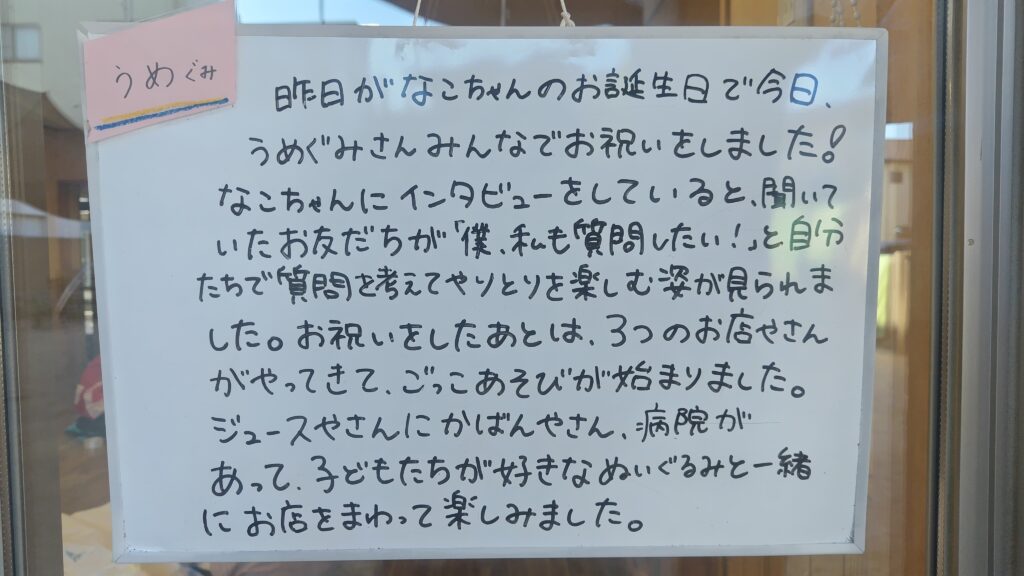 うめぐみ
昨日がなこちゃんのお誕生日で今日、
うめぐみさんみんなでお祝いをしました!
なこちゃんにインタビューをしていると、聞いて
いたお友だちが「僕、私も質問したい!」と自分
たちで質問を考えてやりとりを楽しむ姿が見られま
した。お祝いをしたあとは、3つのお店やさん
がやってきて、ごっこあそびが始まりました。
ジュースやさんにかばんやさん、病院が
あって、子どもたちが好きなぬいぐるみと一緒
にお店をまわって楽しみました。